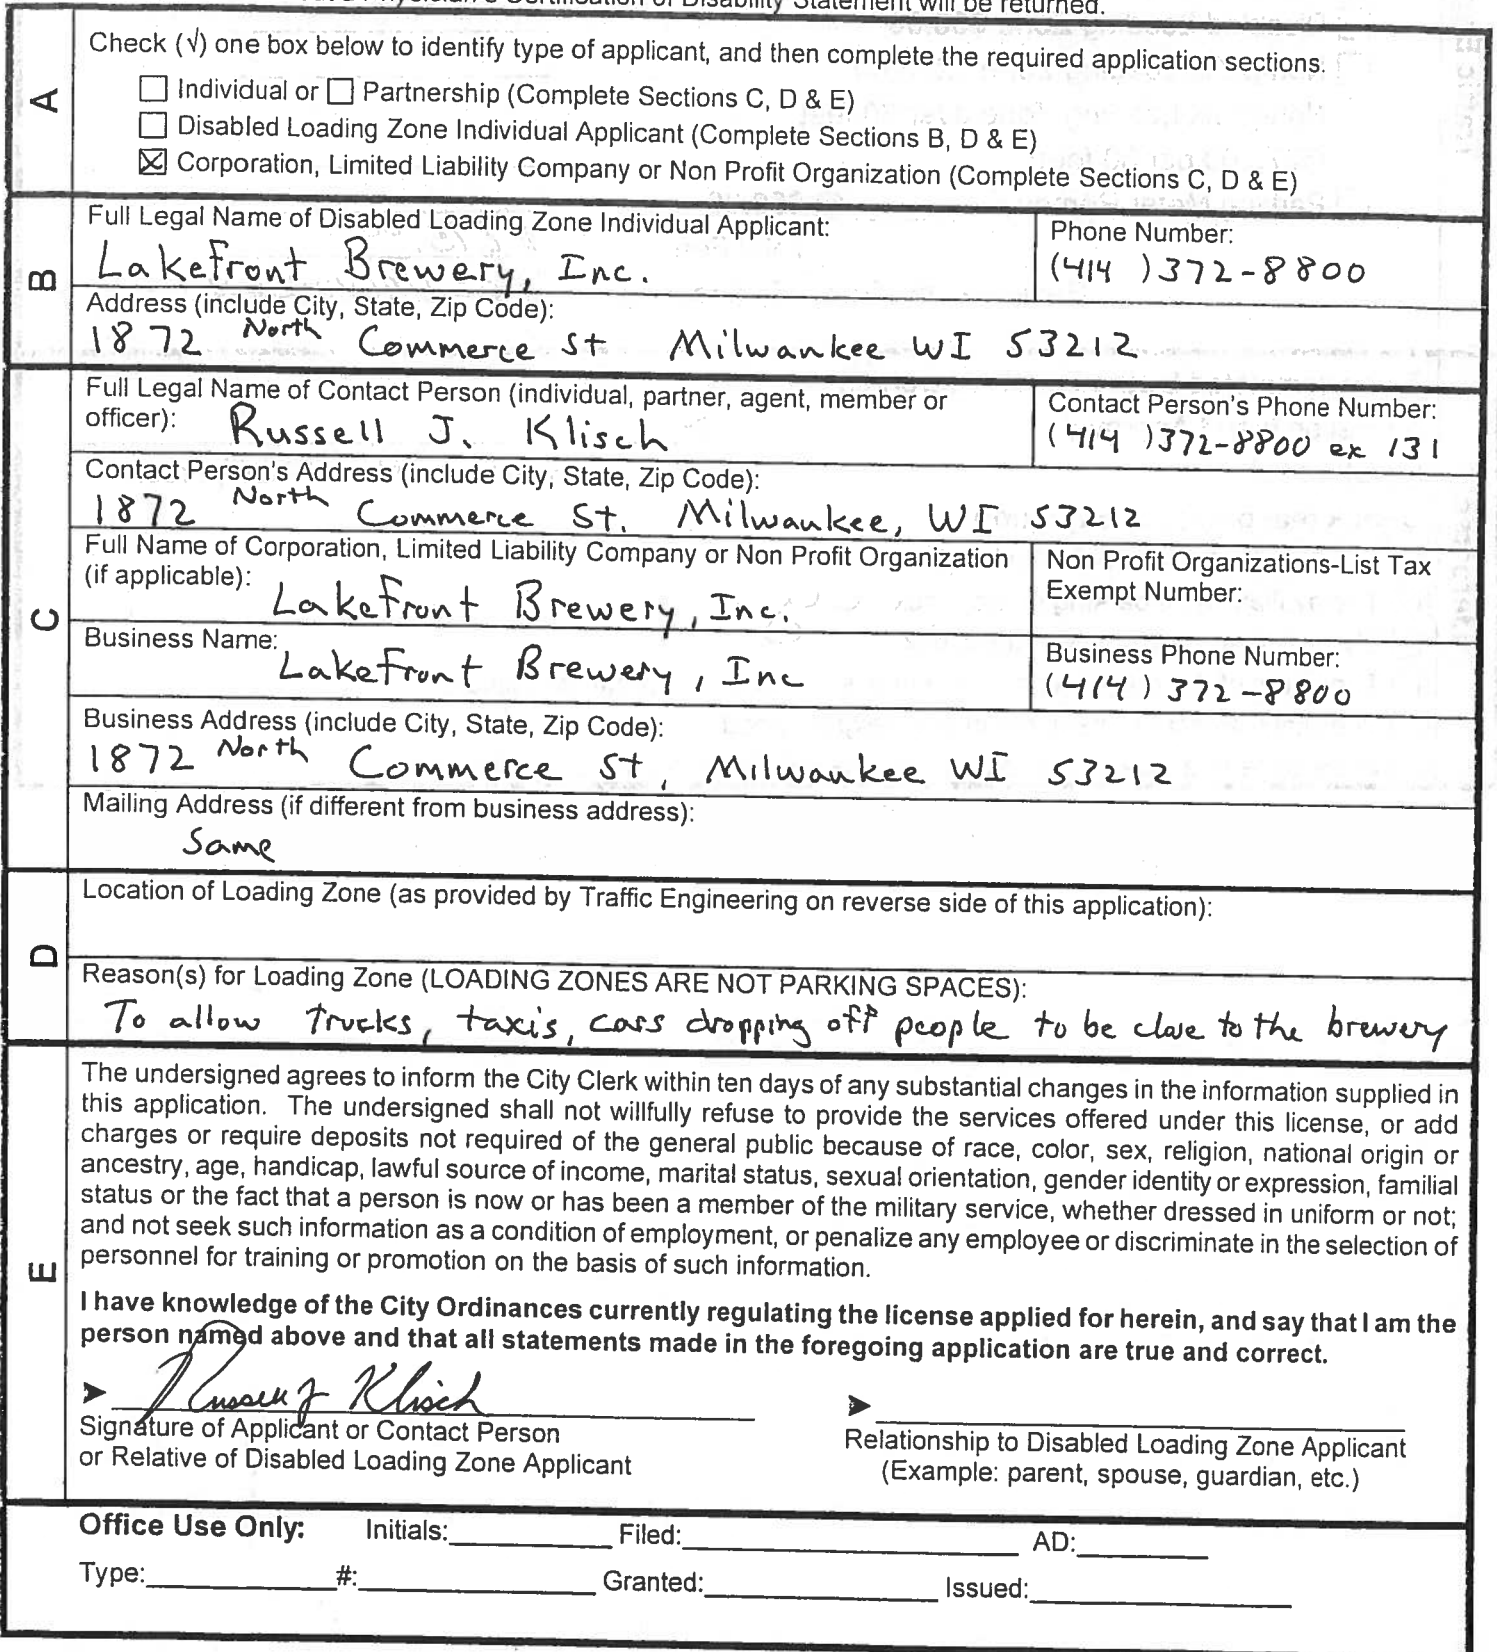 Physician's Certification of Disability Statement will be returned.
A
Check (√) one box below to identify type of applicant, and then complete the required application sections.
☐ Individual or ☐ Partnership (Complete Sections C, D & E)
☐ Disabled Loading Zone Individual Applicant (Complete Sections B, D & E)
☒ Corporation, Limited Liability Company or Non Profit Organization (Complete Sections C, D & E)
B
Full Legal Name of Disabled Loading Zone Individual Applicant:
Lakefront Brewery, Inc.
Phone Number:
(414 ) 372-8800
Address (include City, State, Zip Code):
1872 North Commerce St Milwaukee WI 53212
C
Full Legal Name of Contact Person (individual, partner, agent, member or
officer): Russell J. Klisch
Contact Person's Phone Number:
(414 ) 372-8800 ex 131
Contact Person's Address (include City, State, Zip Code):
1872 North Commerce St. Milwaukee, WI 53212
Full Name of Corporation, Limited Liability Company or Non Profit Organization
(if applicable): Lakefront Brewery, Inc.
Non Profit Organizations-List Tax
Exempt Number:
Business Name: Lakefront Brewery, Inc
Business Phone Number:
(414) 372-8800
Business Address (include City, State, Zip Code):
1872 North Commerce St, Milwaukee WI 53212
Mailing Address (if different from business address):
Same
D
Location of Loading Zone (as provided by Traffic Engineering on reverse side of this application):
Reason(s) for Loading Zone (LOADING ZONES ARE NOT PARKING SPACES):
To allow trucks, taxis, cars dropping off people to be close to the brewery
E
The undersigned agrees to inform the City Clerk within ten days of any substantial changes in the information supplied in
this application. The undersigned shall not willfully refuse to provide the services offered under this license, or add
charges or require deposits not required of the general public because of race, color, sex, religion, national origin or
ancestry, age, handicap, lawful source of income, marital status, sexual orientation, gender identity or expression, familial
status or the fact that a person is now or has been a member of the military service, whether dressed in uniform or not;
and not seek such information as a condition of employment, or penalize any employee or discriminate in the selection of
personnel for training or promotion on the basis of such information.
I have knowledge of the City Ordinances currently regulating the license applied for herein, and say that I am the
person named above and that all statements made in the foregoing application are true and correct.
Russell J Klisch
Signature of Applicant or Contact Person
or Relative of Disabled Loading Zone Applicant
Relationship to Disabled Loading Zone Applicant
(Example: parent, spouse, guardian, etc.)
Office Use Only: Initials: Filed: AD:
Type: #: Granted: Issued: